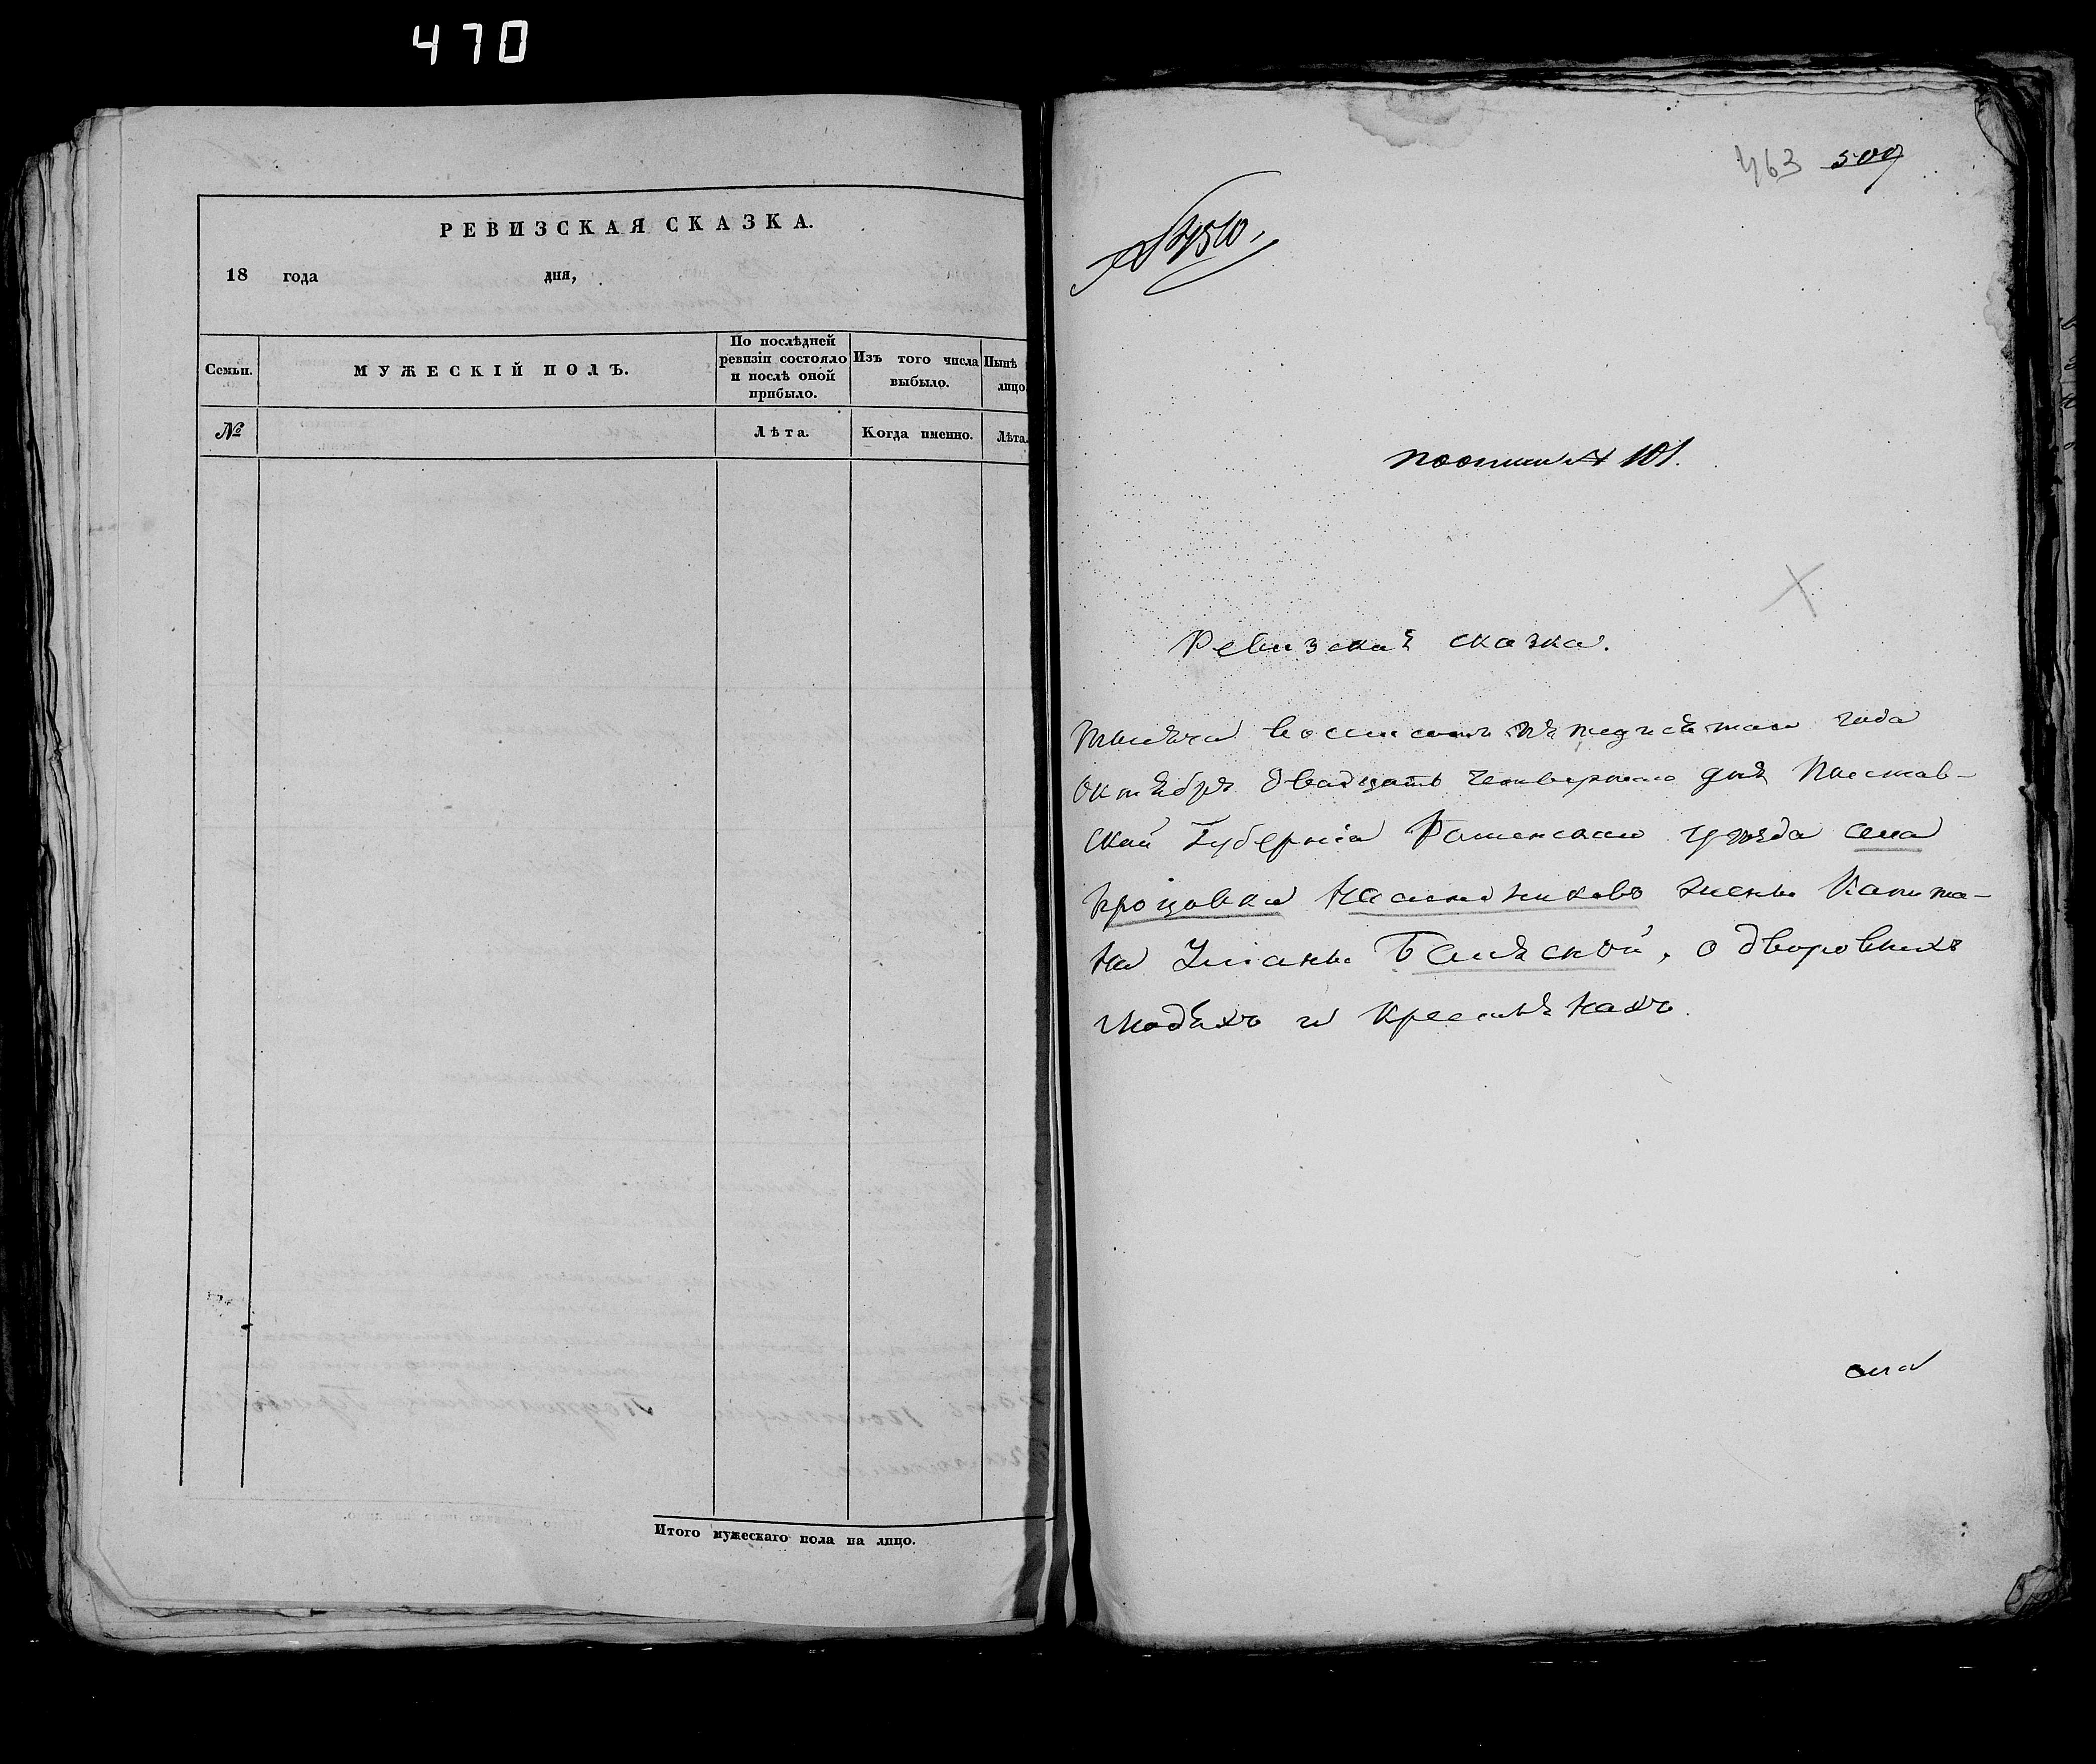 470
РЕВИЗСКАЯ СКАЗКА.
18 года дня,
Семьи.
МУЖЕСКІЙ ПОЛЪ.
По послѣдней
ревизіи состояло
и послѣ оной
прибыло.
Изъ того числа
выбыло.
Нынѣ
лицо
№
Лѣта.
Когда именно.
Лѣта.
Итого мужескаго пола на лицо.
463 509
№ 4510.
по описи № 101.
Ревизская сказка.
Тысяча восемсотъ пятдесятаго года
Октября двадцать четвертаго дня Полтав-
ской Губерніи уѣзда села
наслѣдниковъ жены Капита-
на , о дворовыхъ
людяхъ и крестьянахъ.